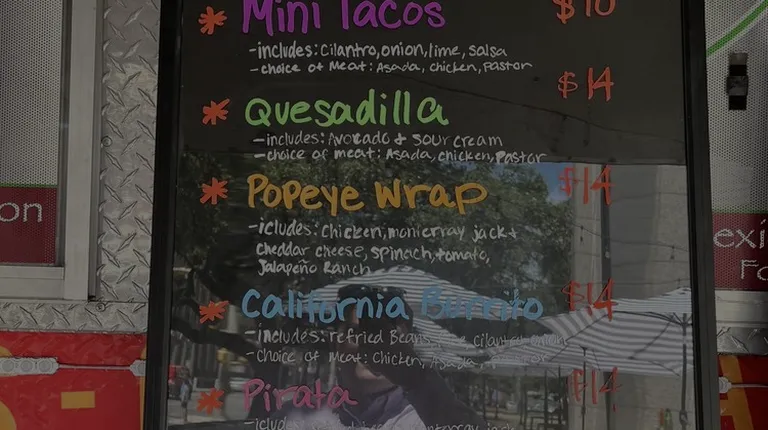 * Mini Tacos $10
-includes: Cilantro, onion, lime, salsa
-choice of Meat: Asada, chicken, Pastor
* Quesadilla $14
-includes: Avocado & sour cream
-choice of meat: Asada, chicken, Pastor
* Popeye Wrap $14
-icludes: chicken, monterray jack &
cheddar cheese, spinach, tomato,
Jalapeño Ranch
* California Burrito $14
-includes: refried Beans, Cilantro
-choice of Meat: Chicken, Asada,
* Pirata $14
jack
on
exi
Fo